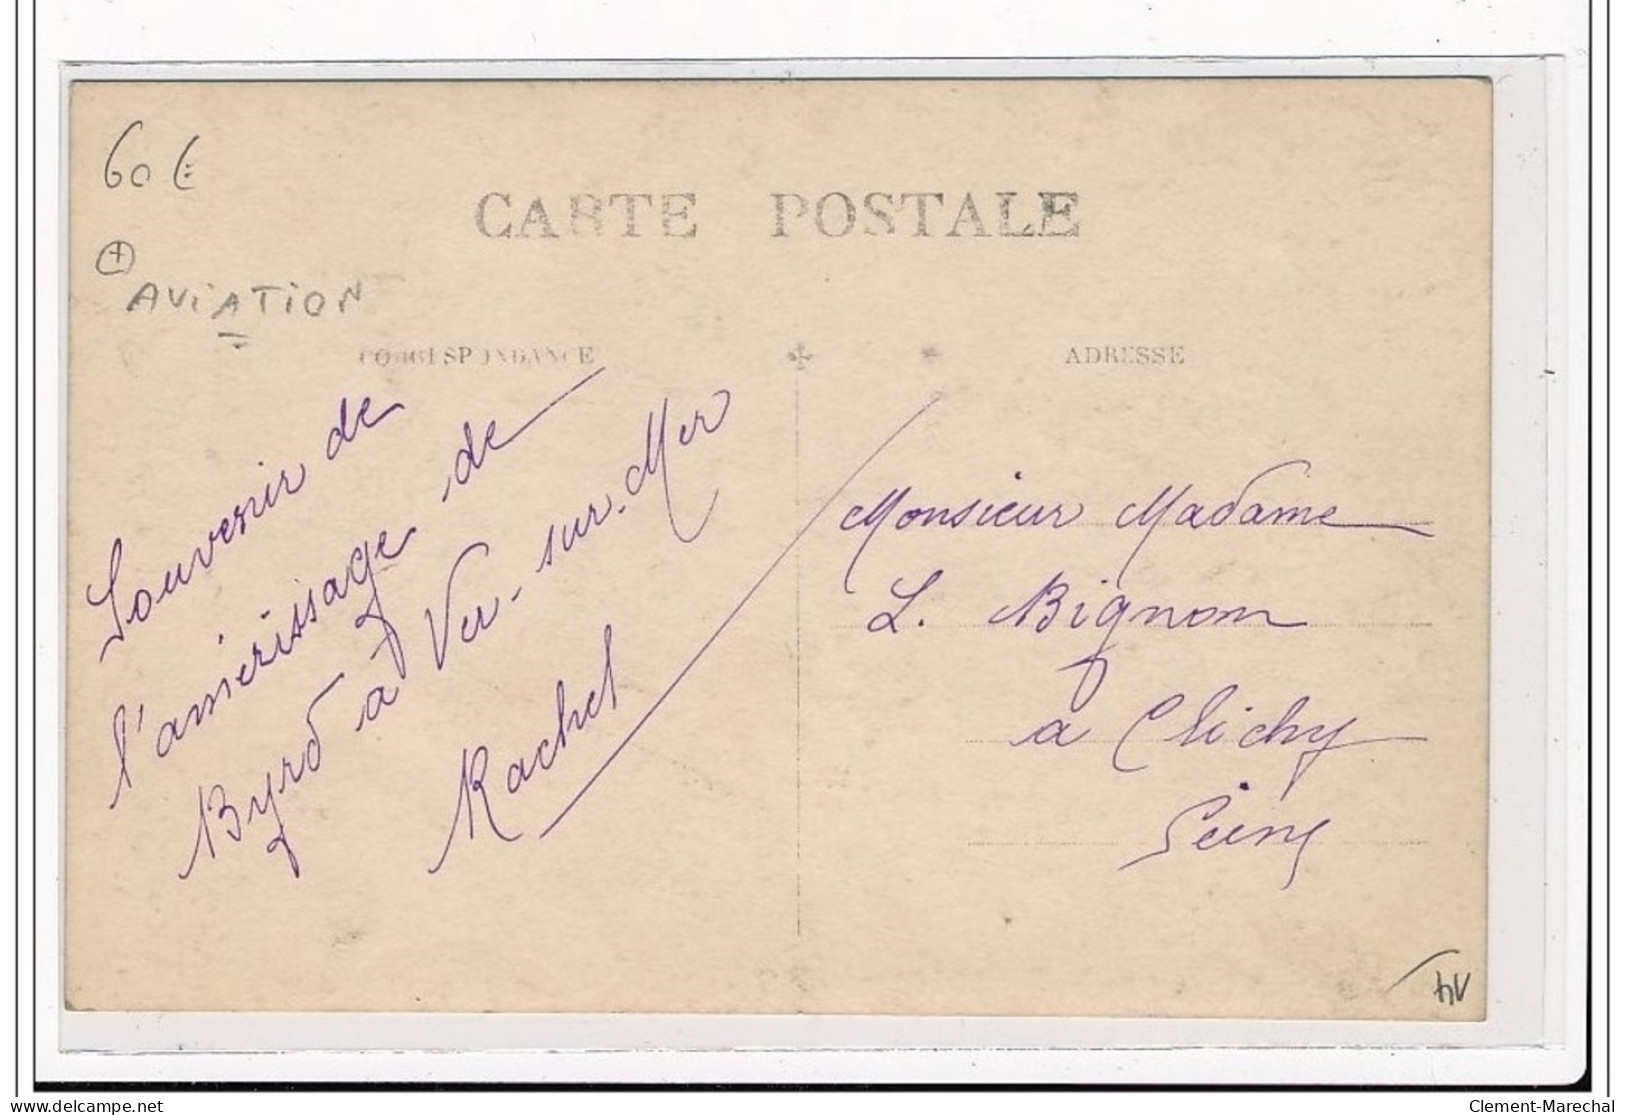 60 €
CARTE POSTALE
+
AViATiON
CORRESPONDANCE
ADRESSE
Souvenir de
l'amérissage de
Byrd à Ver-sur-Mer
Rachel
Monsieur Madame
L. Bignon
a Clichy
Seine
delcampe.net
Clement-Marechal